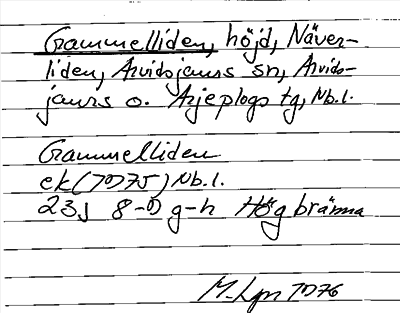 Grammelliden, höjd, Näver-
liden, Arvidsjaurs sn, Arvids-
jaurs o. Arjeplogs tg, Nb.l.
Grammelliden
ek (1975) Nb.l.
23J 8-9 g-h Högbränna
M. Lgn 1976